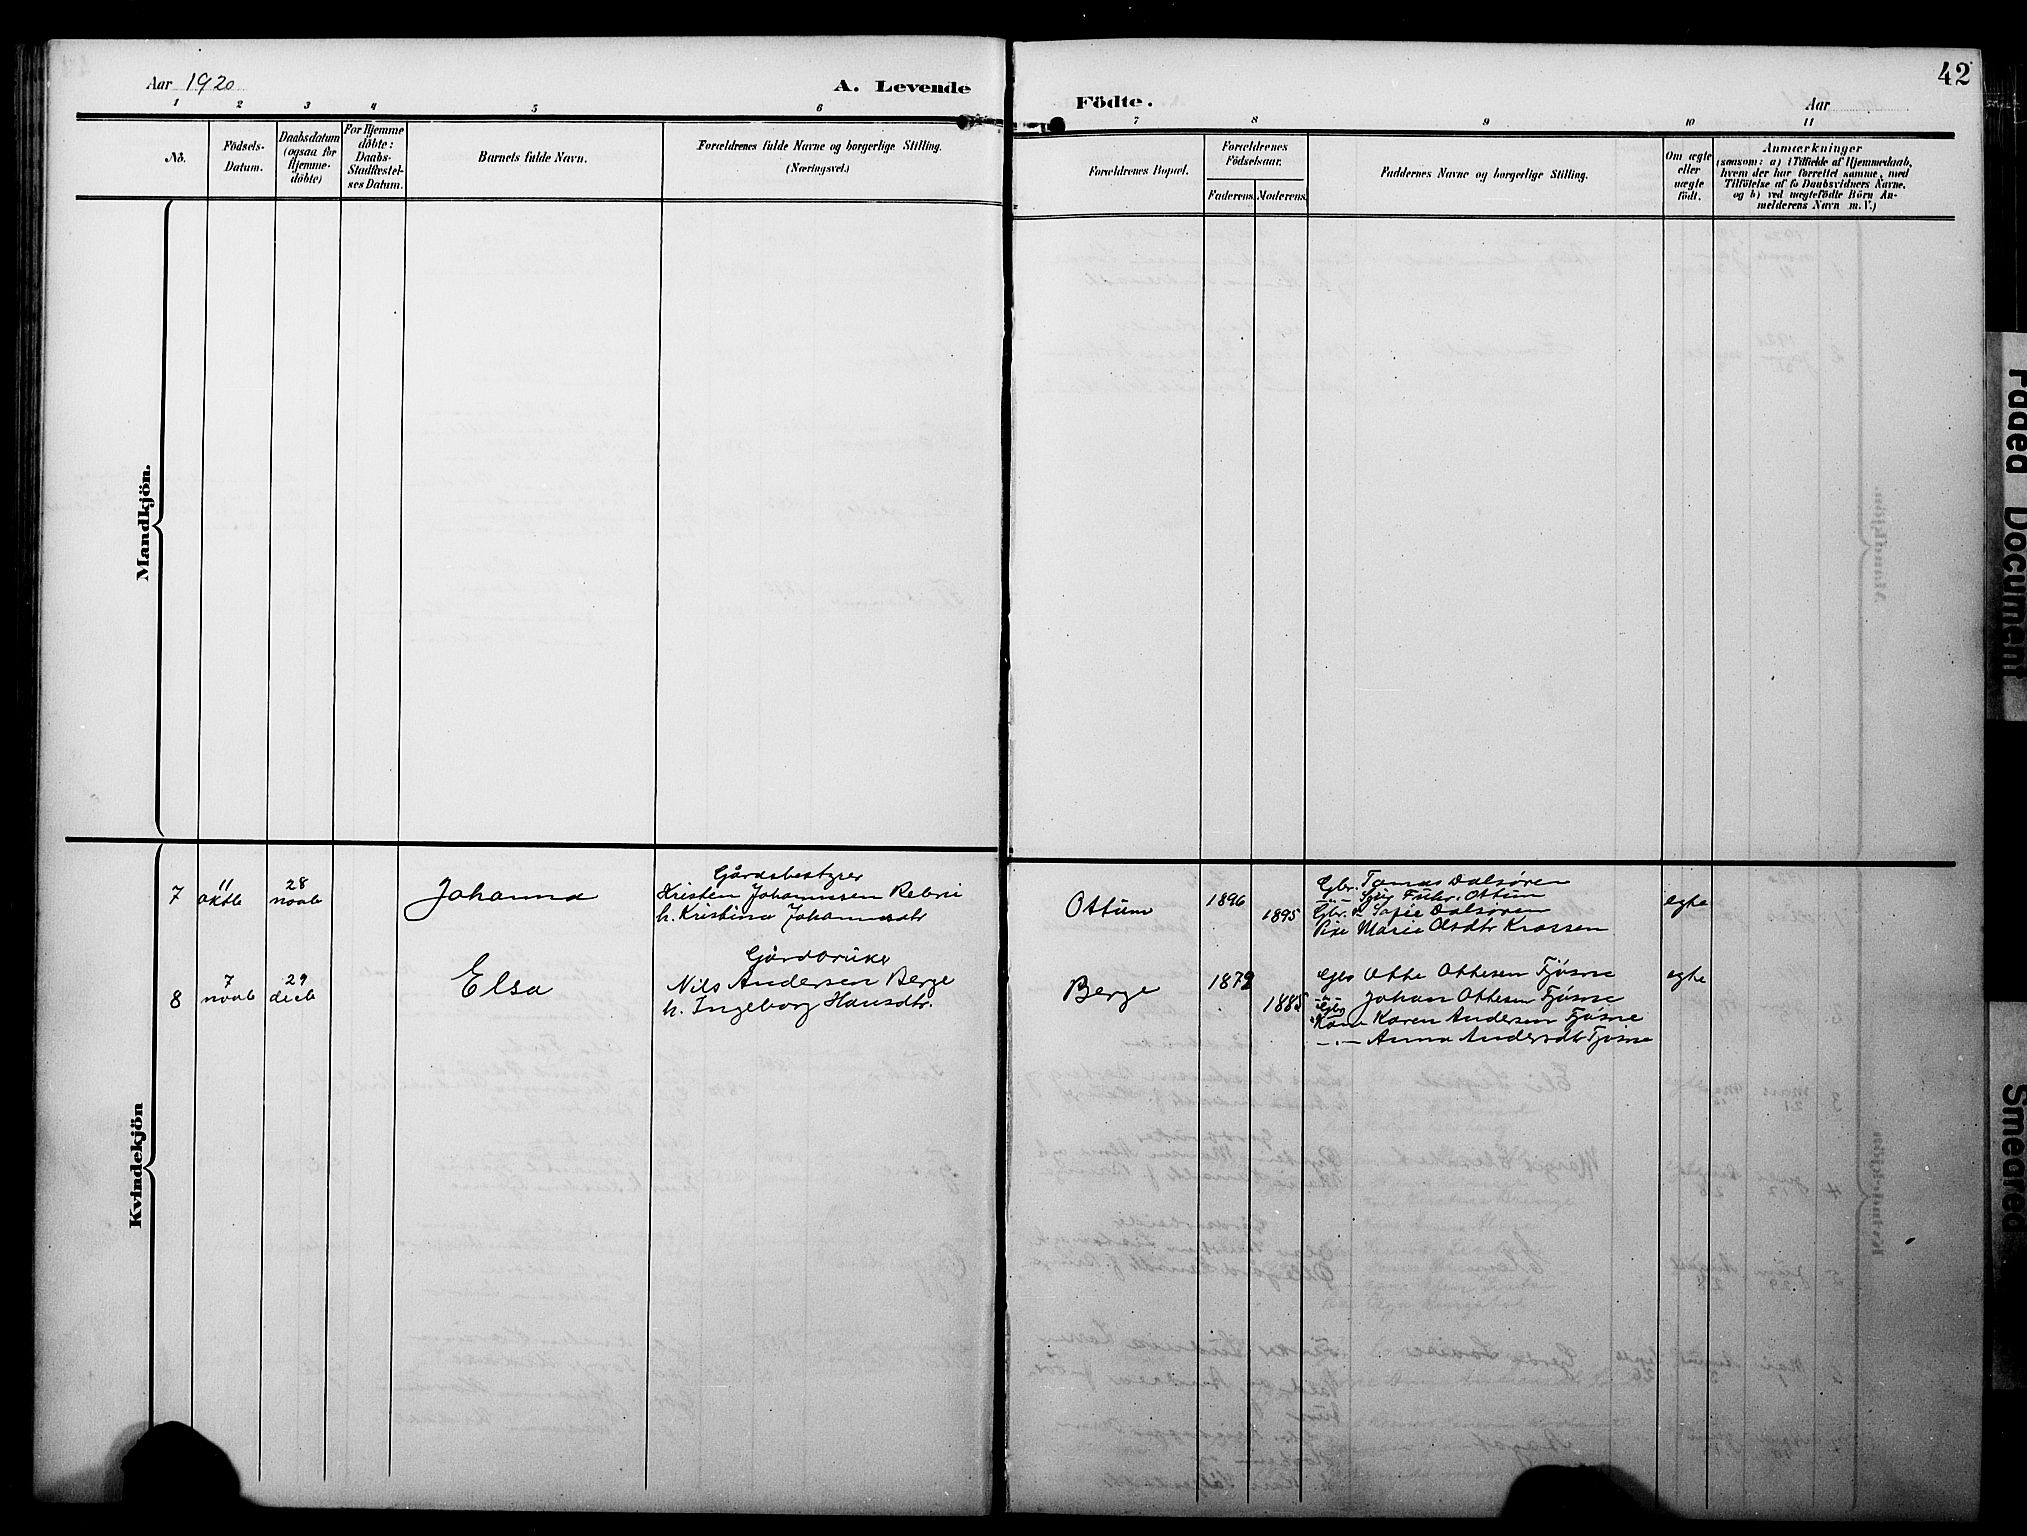 Aar 1920
A. Levende
Födte.
Aar
42
1 2 3 4 5 6 7 8 9 10 11
No.
Födsels-
Datum.
Daabsdatum
(ogsaa for
Hjemme-
döbte)
For Hjemme
döbte:
Daabs-
Stadfæstel-
ses Datum.
Barnets fulde Navn.
Forældrenes fulde Navne og borgerlige Stilling.
(Næringsvei.)
Forældrenes Bopæl.
Forældrenes
Födselsaar.
Faderens.
Moderens.
Faddernes Navne og borgerlige Stilling.
Om ægte
eller
uægte
födt.
Anmærkninger
(saasom: a) i Tilfælde af Hjemmedaab,
hvem der har forrettet samme, med
Tilföielse af to Daabsvidners Navne,
og b) ved uægtefödte Börn An-
melderens Navn m. V.)
Mandkjön.
Kvindekjön
7
11
oktb
28
novb
Johanna
Gårdsbestyrer
Kristen Johannesen
h. Kristina Johannesdtr
Ottum
1896
1895
Gbr. Tomas Dalsøren
Ottum
Gbr. k Sofie Dalsøren
Pike Marie Olsdtr Krossen
egte
8
7
novb
29
decb
Elsa
Gårdbruker
Nils Andersen Berge
h. Ingeborg Hansdtr.
Berge
1879
1885
Gbr Otte Ottesen Fjøsne
-"- Johan Ottesen Fjøsne
Kone Karen Andersen Fjøsne
-"- Anna Andersdtr Fjøsne
egte
Faded Document
Smeared